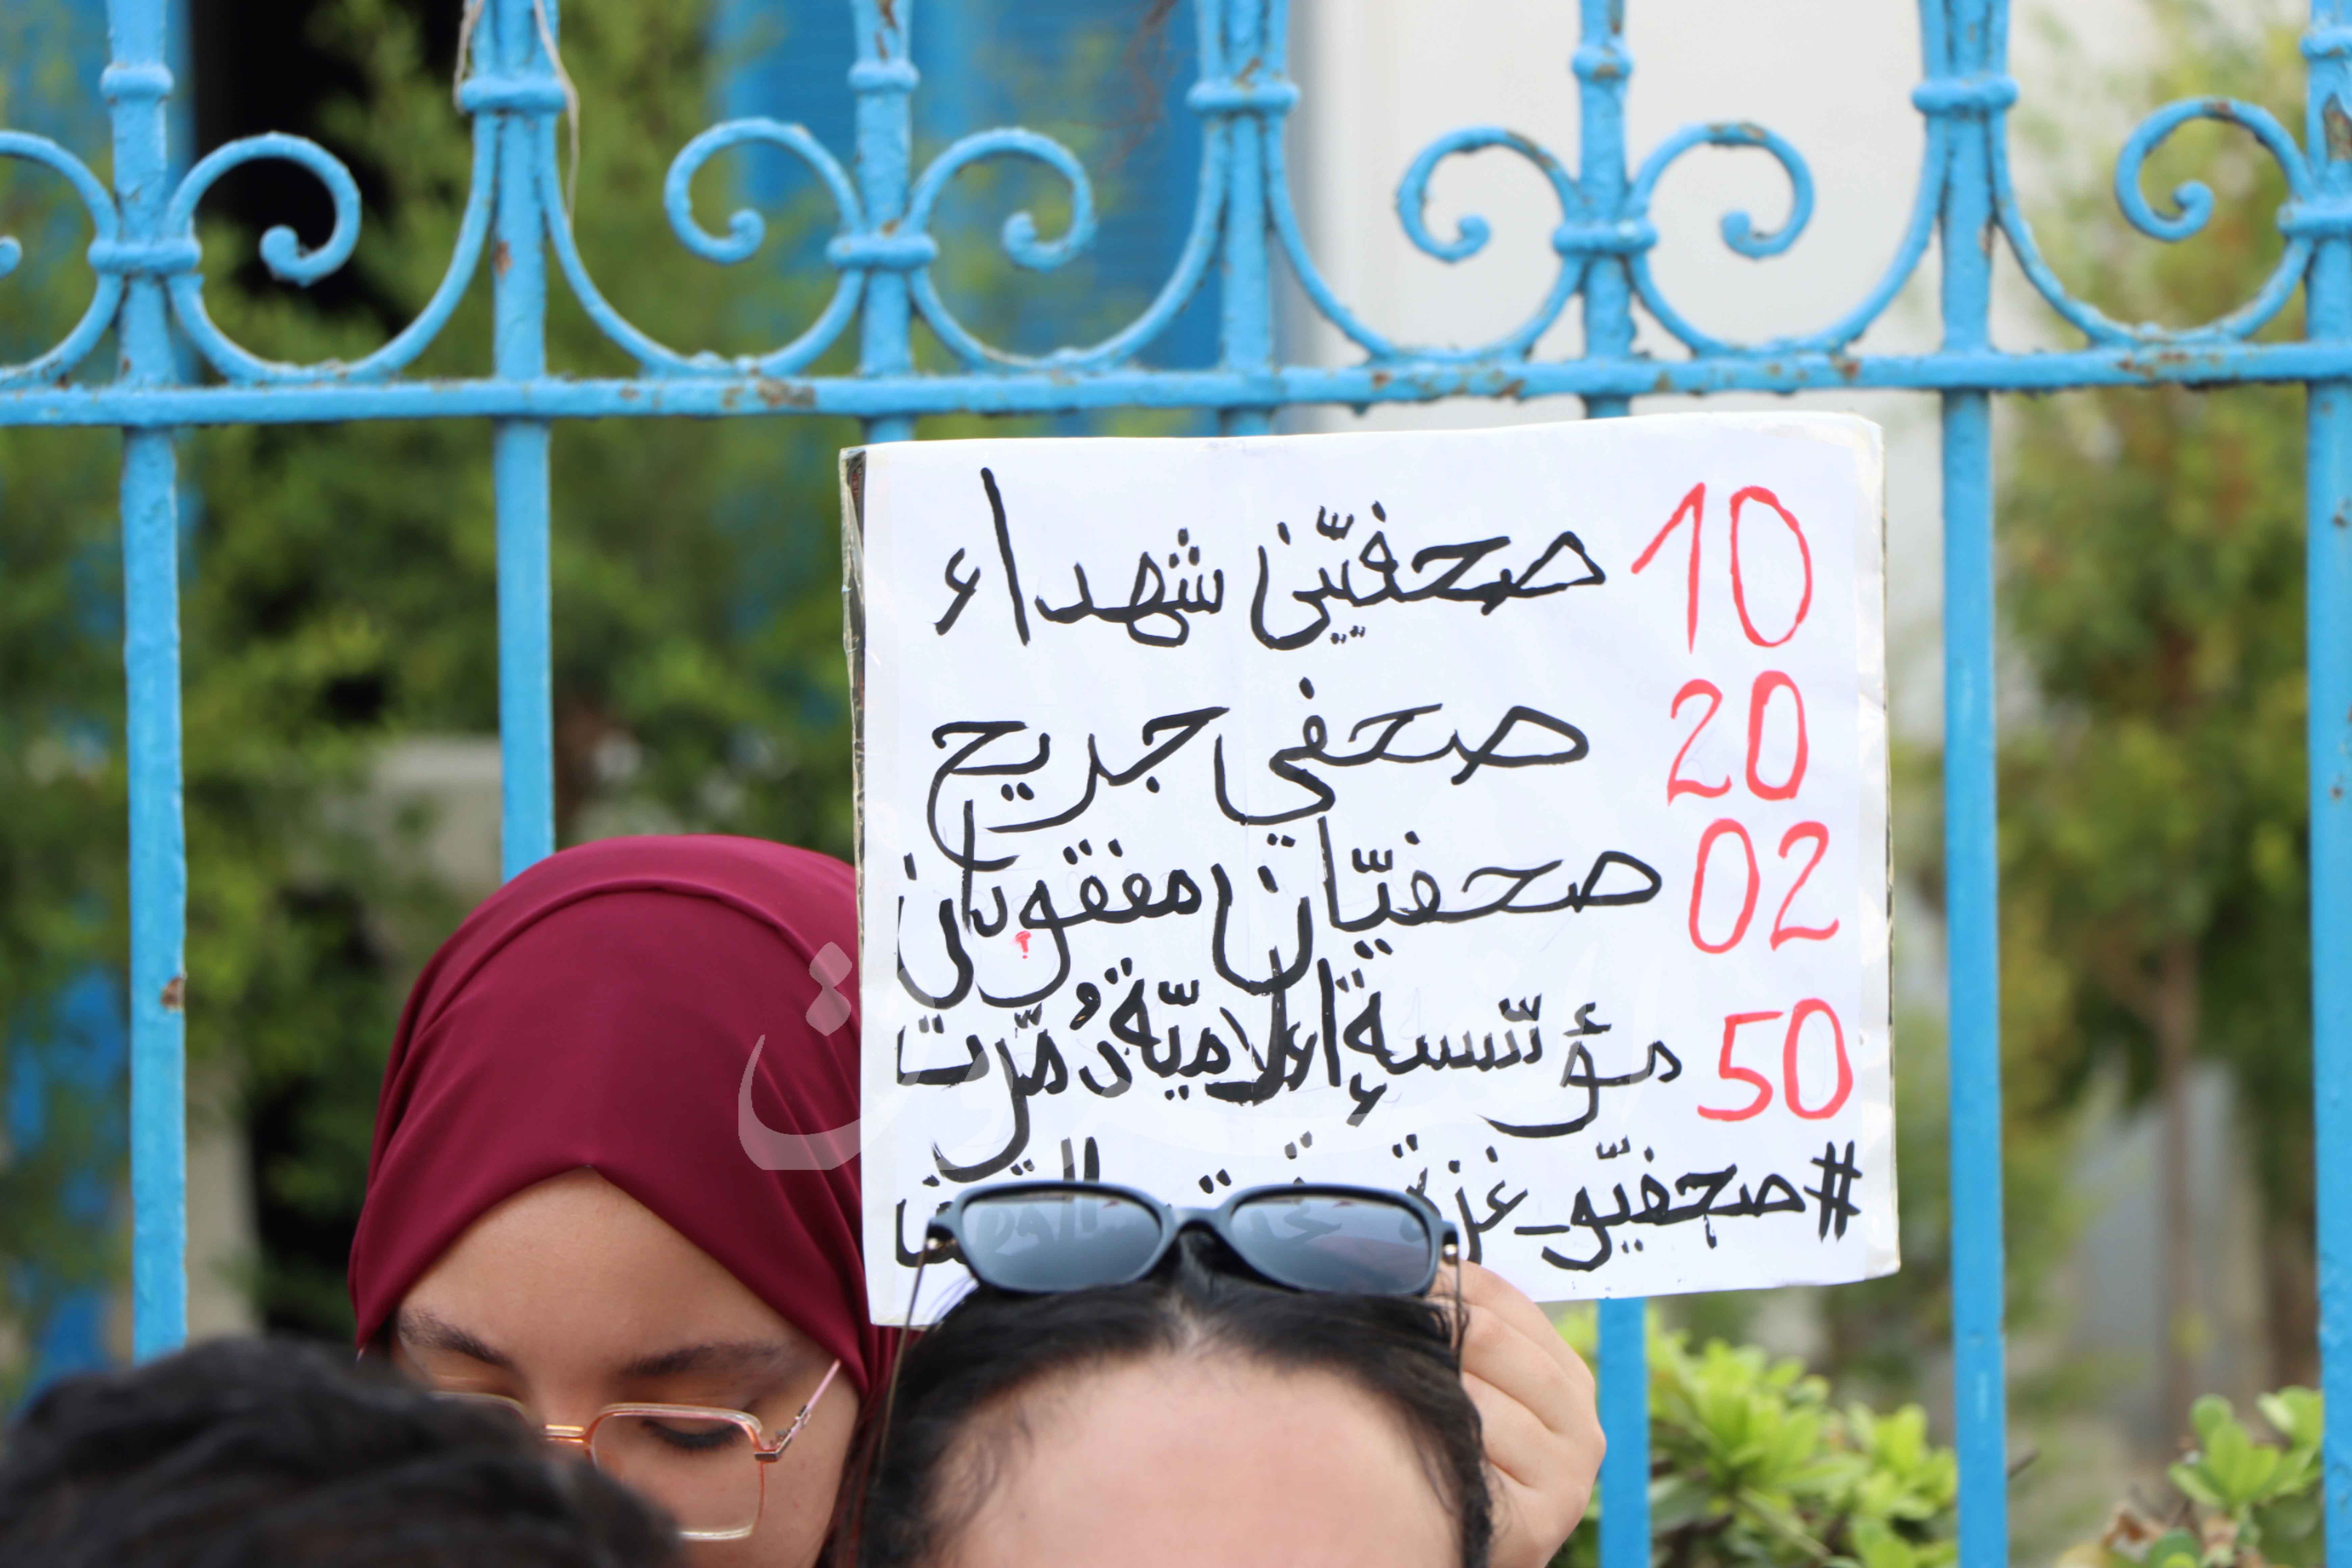 10 صحفيّين شهداء
20 صحفي جريح
02 صحفيّان مفقودان
؟
50 مؤسّسة إعلاميّة دُمّرت
#صحفيّو_غزة تحت القصف